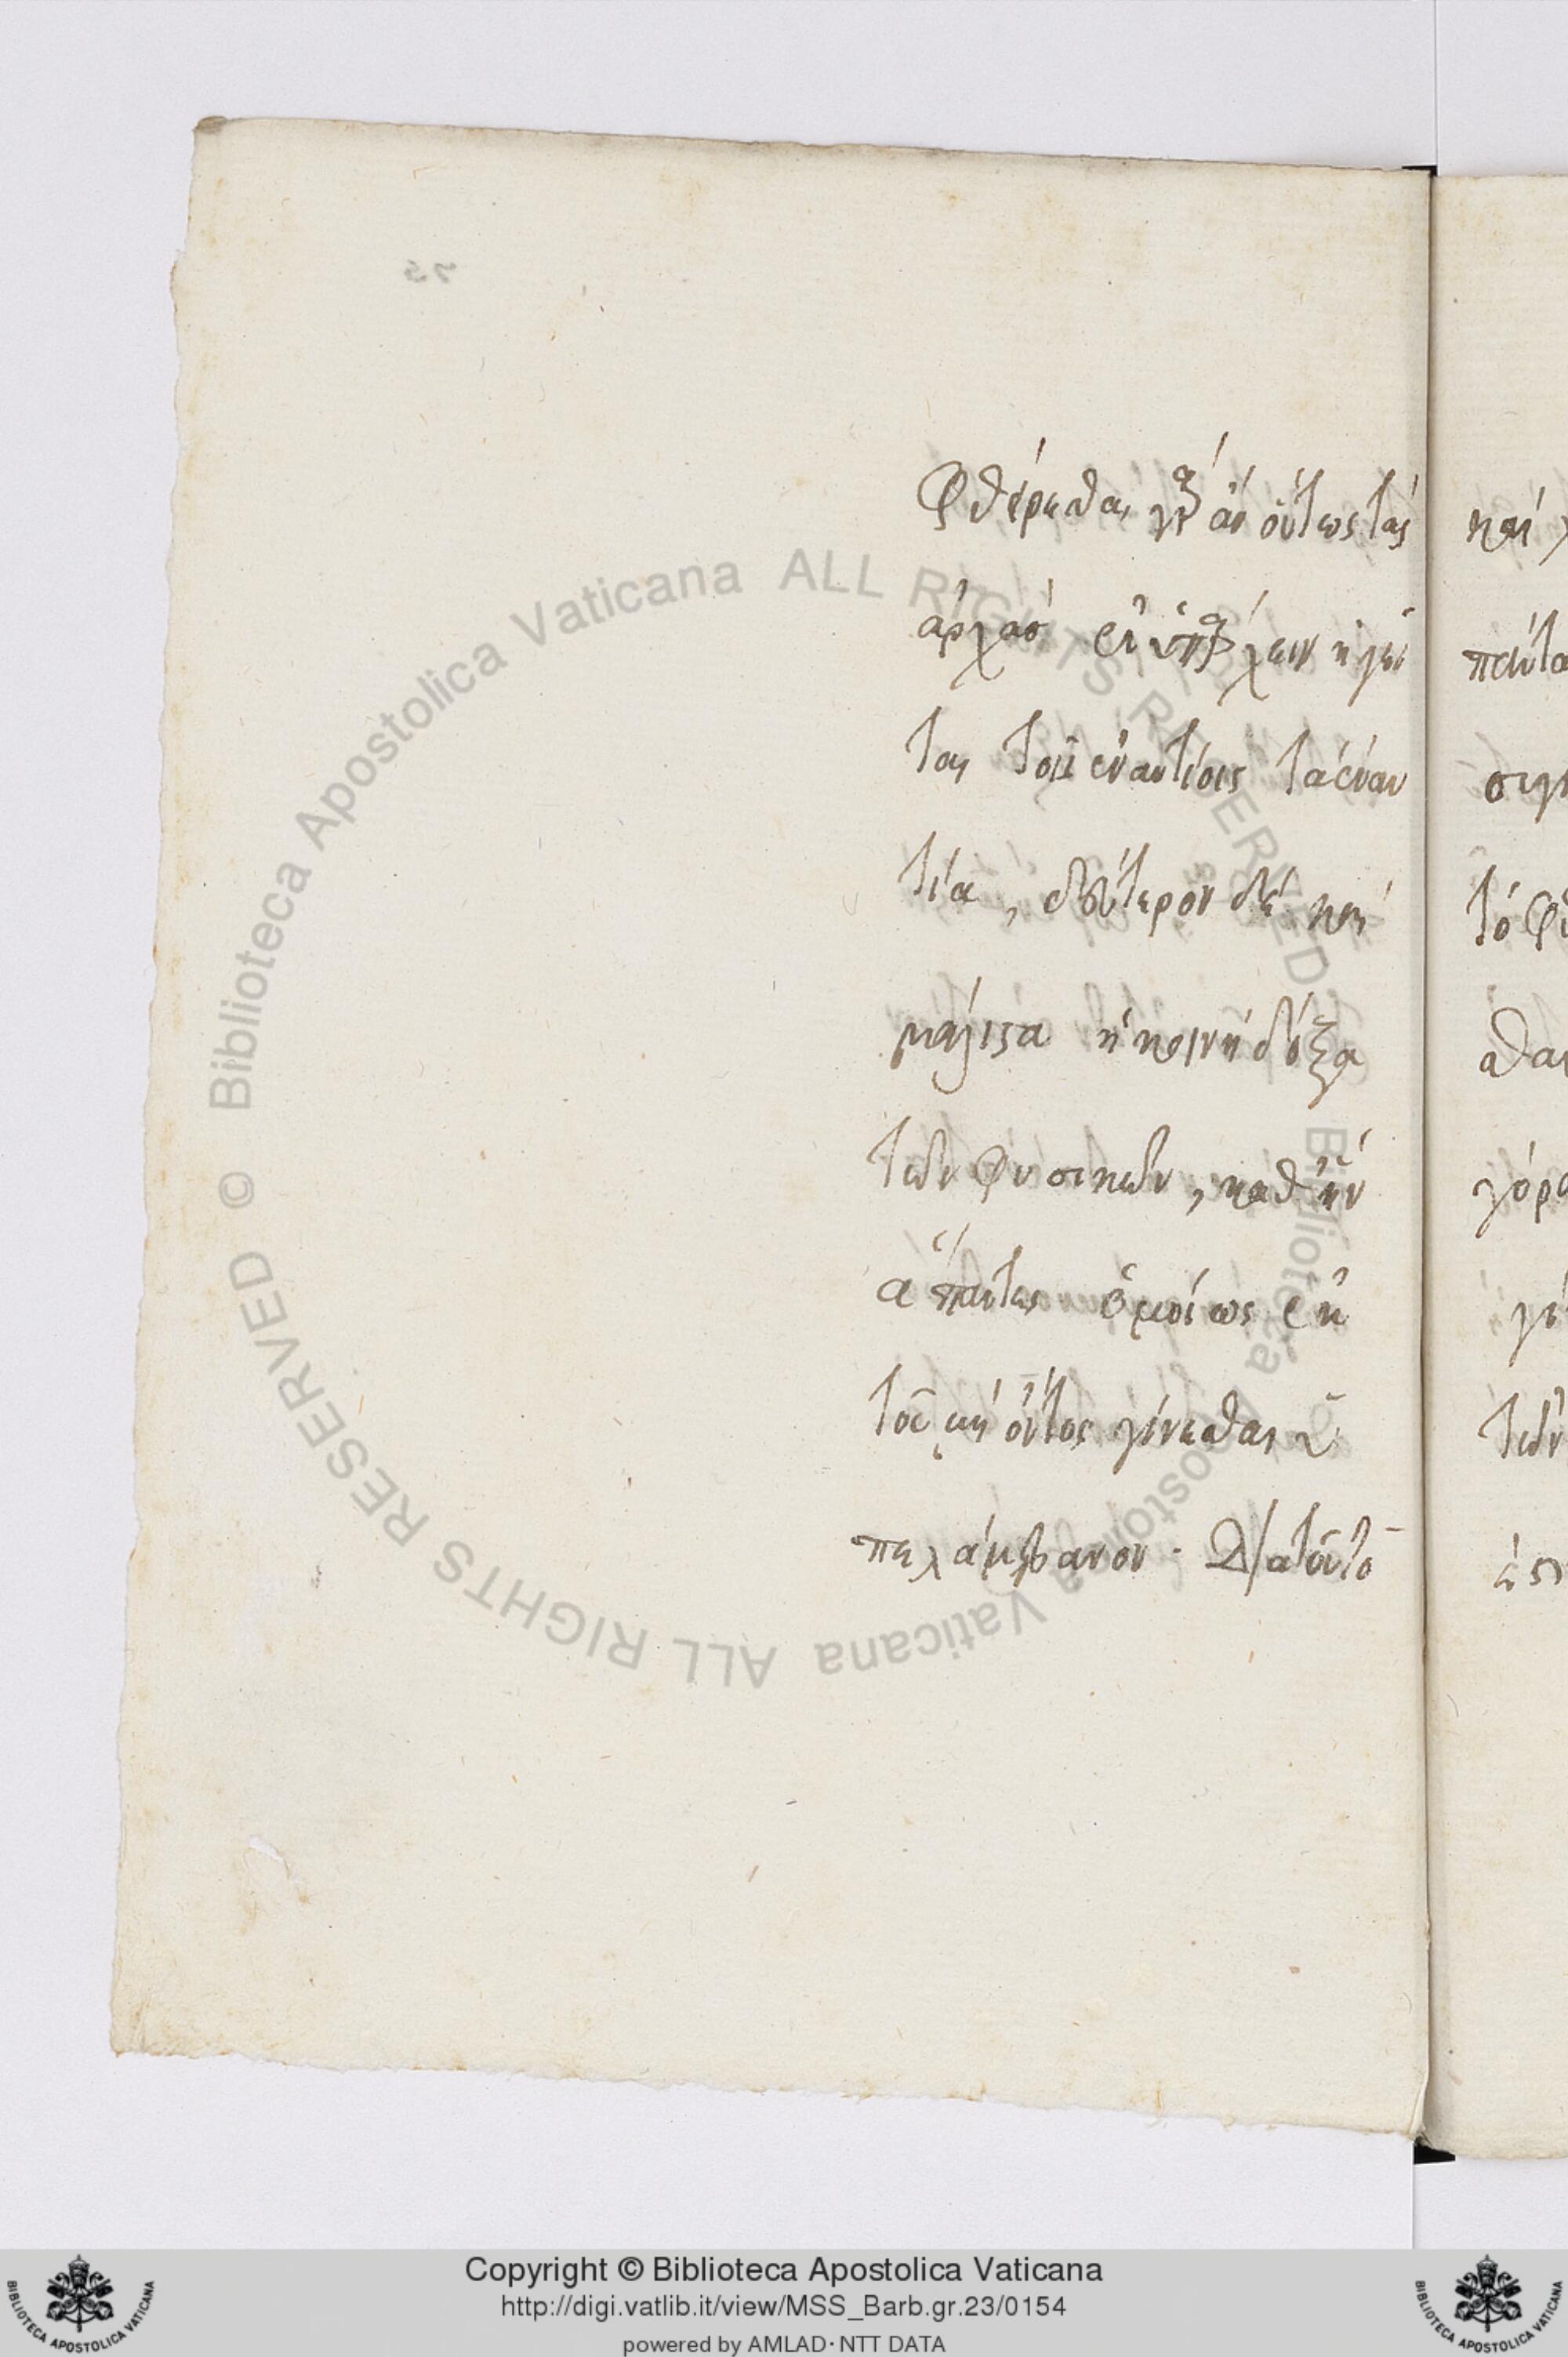 75
φθείρεσθαι γὰρ ἂν οὕτως τὰς
ἀρχὰς εἰ ὑπάρχειν ἡγεῖ
ται τοῖς ἐναντίοις τὰ ἐναν
τία, δεύτερον δὲ καὶ
μάλιστα ἡ κοινὴ δόξα
τῶν φυσικῶν, καθ' ἣν
ἅπαντες ὁμοίως ἐκ
τοῦ μὴ ὄντος γίνεσθαι ὑ
πελάμβανον. Διὰ τοῦτο
καὶ
πάντα
σιγ
τὸ φ
σθαι
γόρα
γί
τῶν
© Biblioteca Apostolica Vaticana ALL RIGHTS RESERVED
Biblioteca Apostolica Vaticana ALL RIGHTS RESERVED
BIBLIOTECA APOSTOLICA VATICANA
Copyright © Biblioteca Apostolica Vaticana
http://digi.vatlib.it/view/MSS_Barb.gr.23/0154
powered by AMLAD·NTT DATA
BIBLIOTECA APOSTOLICA VATICANA